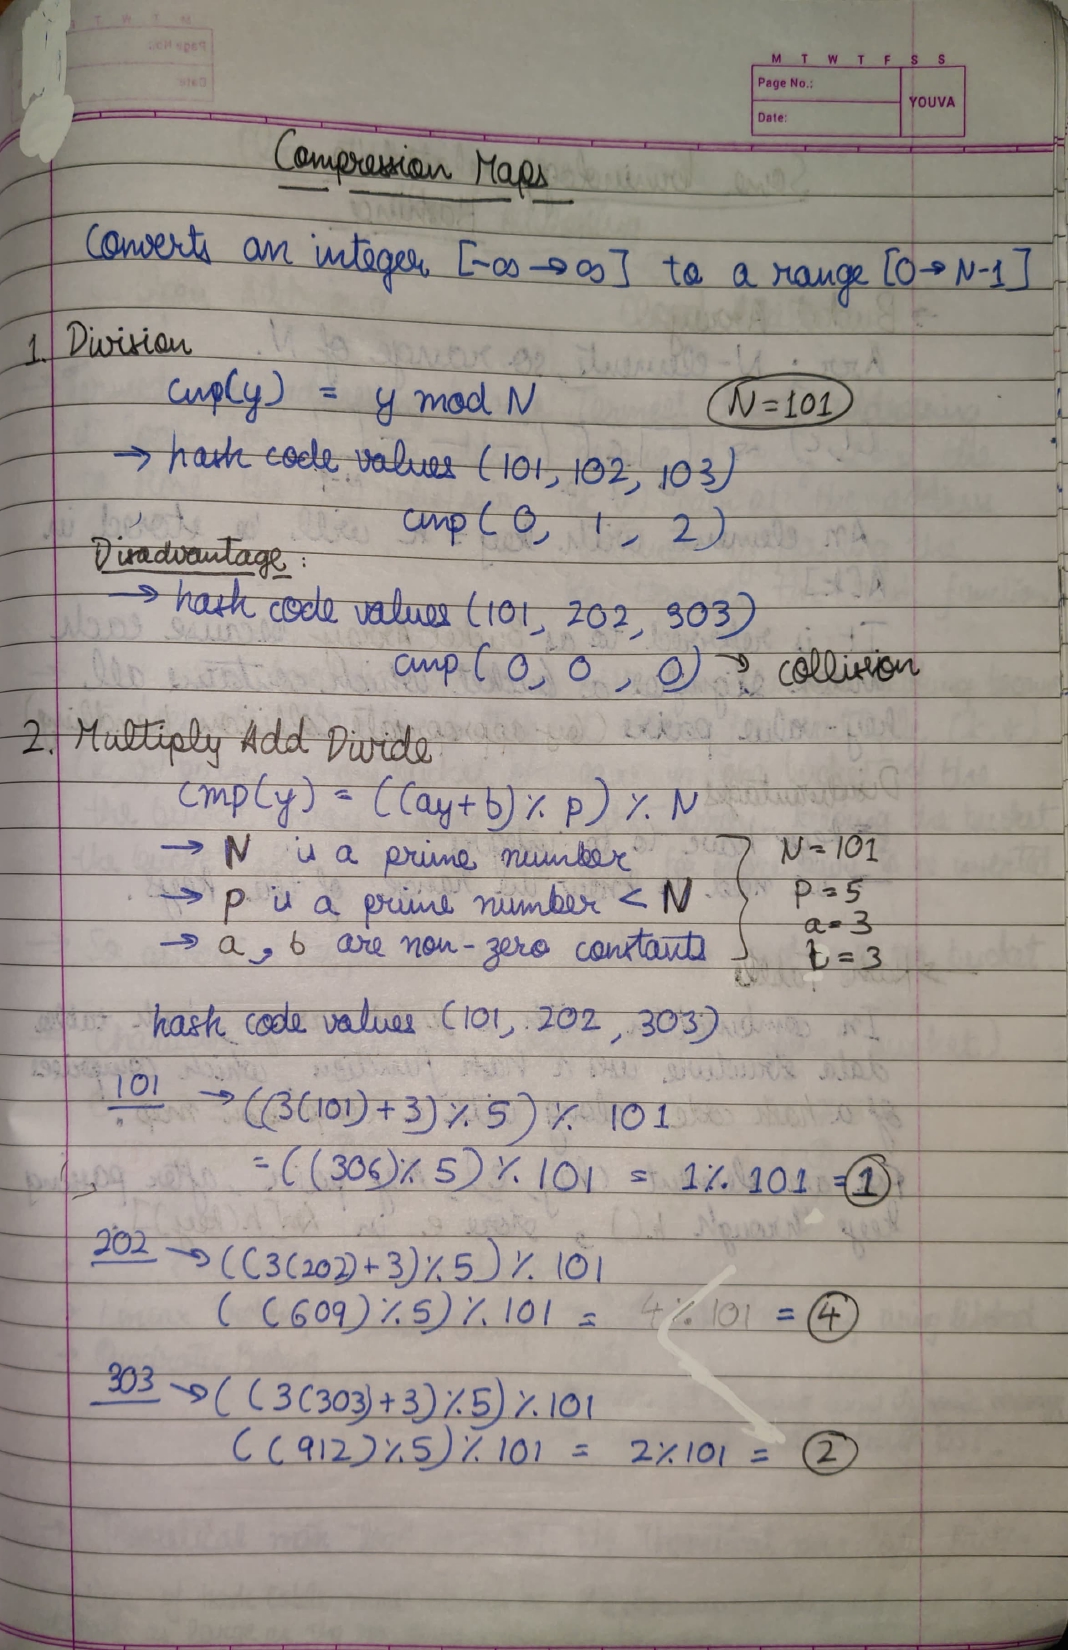 M T W T F S S
Page No.:
Date:
YOUVA
Compression Maps
Converts an integer [-∞ → ∞] to a range [0 → N-1]
1. Division
cmp(y) = y mod N
N=101
→ hash code values (101, 102, 103)
cmp( 0, 1, 2)
Disadvantage:
→ hash code values (101, 202, 303)
cmp( 0, 0, 0) → collision
2. Multiply Add Divide
cmp(y) = ((ay+b) % p) % N
→ N is a prime number
→ p is a prime number < N
→ a, b are non-zero constants
N=101
p=5
a=3
b=3
hash code values (101, 202, 303)
101 → ((3(101)+3) % 5) % 101
= ((306) % 5) % 101 = 1 % 101 = 1
202 → ((3(202)+3) % 5) % 101
((609) % 5) % 101 = 4 % 101 = 4
303 → ((3(303)+3) % 5) % 101
((912) % 5) % 101 = 2 % 101 = 2